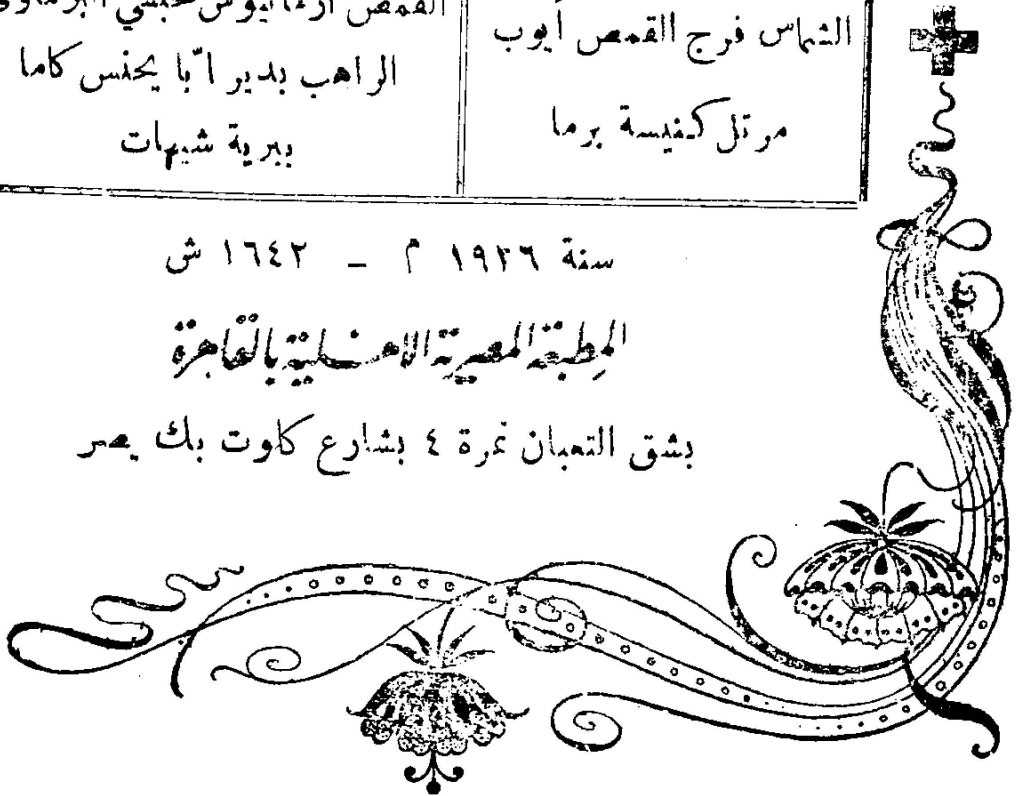 الشماس فرج القمص أيوب
مرتل كنيسة برما
القمص
الراهب بدير انبا يحنس كاما
ببرية شيهات
سنة ١٩٢٦ م – ١٦٤٢ ش
المطبعة المصرية الاهلية بالقاهرة
بشق الثعبان نمرة ٤ بشارع كلوت بك بمصر